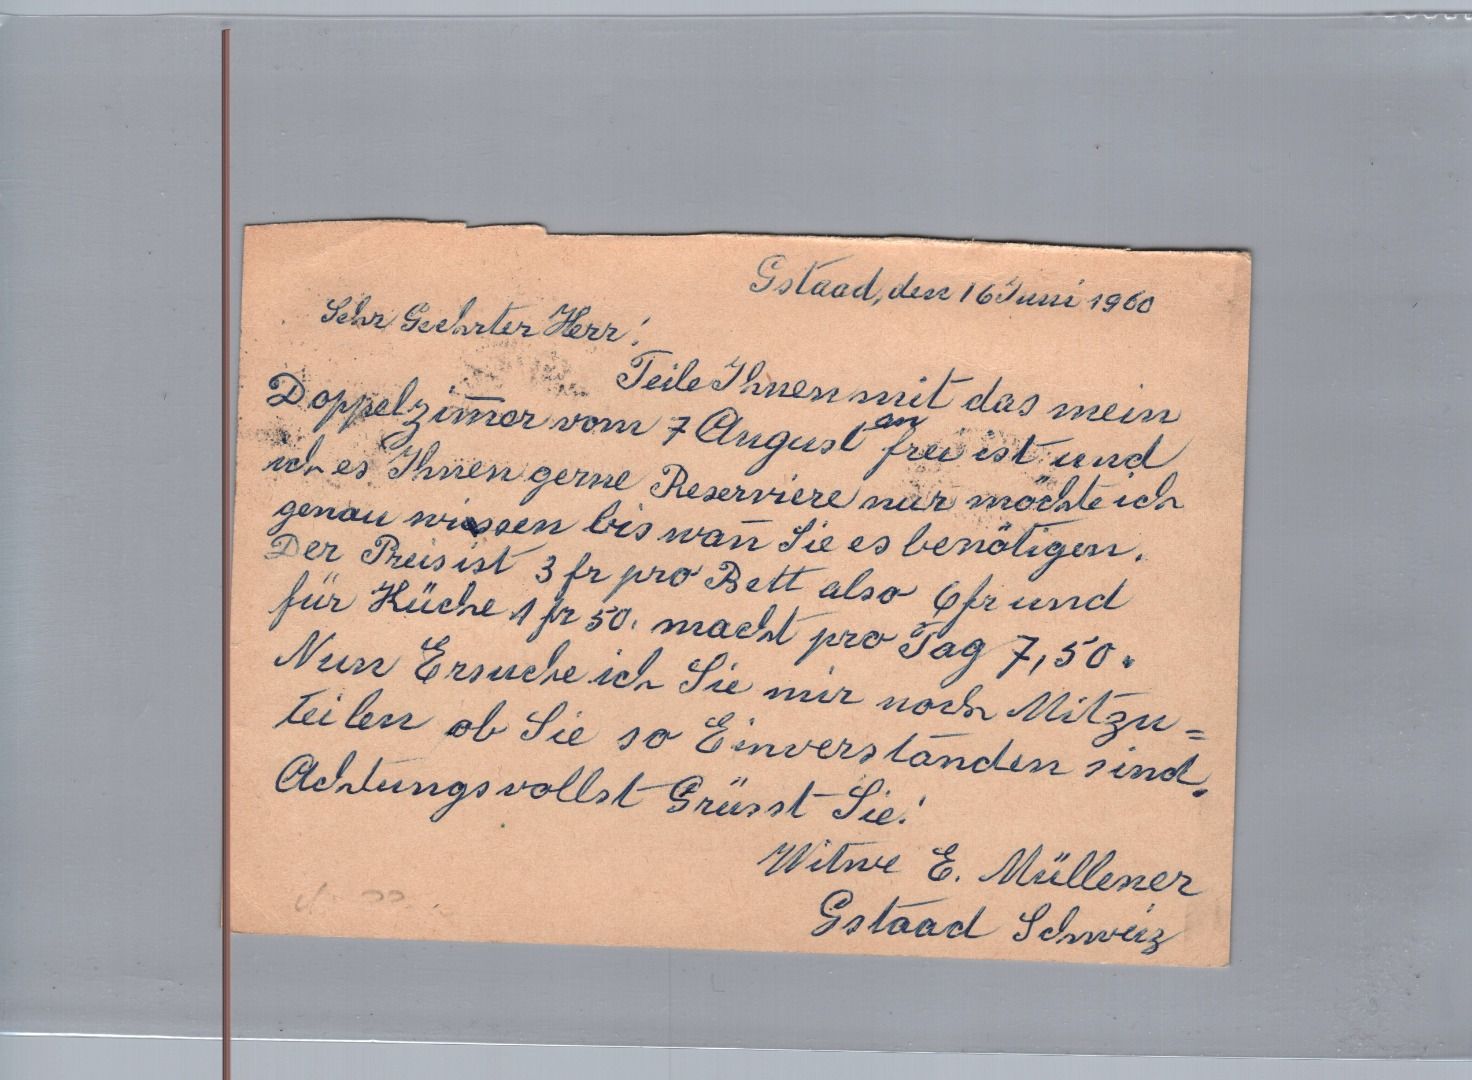 Gstaad, den 16 Juni 1960
Sehr Geehrter Herr!
Teile Ihnen mit das mein
Doppelzim̄er vom 7 August an frei ist und
ich es Ihnen gerne Reserviere nur möchte ich
genau wissen bis wan̄ Sie es benötigen.
Der Preis ist 3 fr pro Bett also 6 fr und
für Küche 1 fr 50. macht pro Tag 7,50.
Nun Ersuche ich Sie mir noch Mitzu=
teilen ob Sie so Einverstanden sind.
Achtungsvollst Grüsst Sie!
Witwe E. Müllener
Gstaad Schweiz